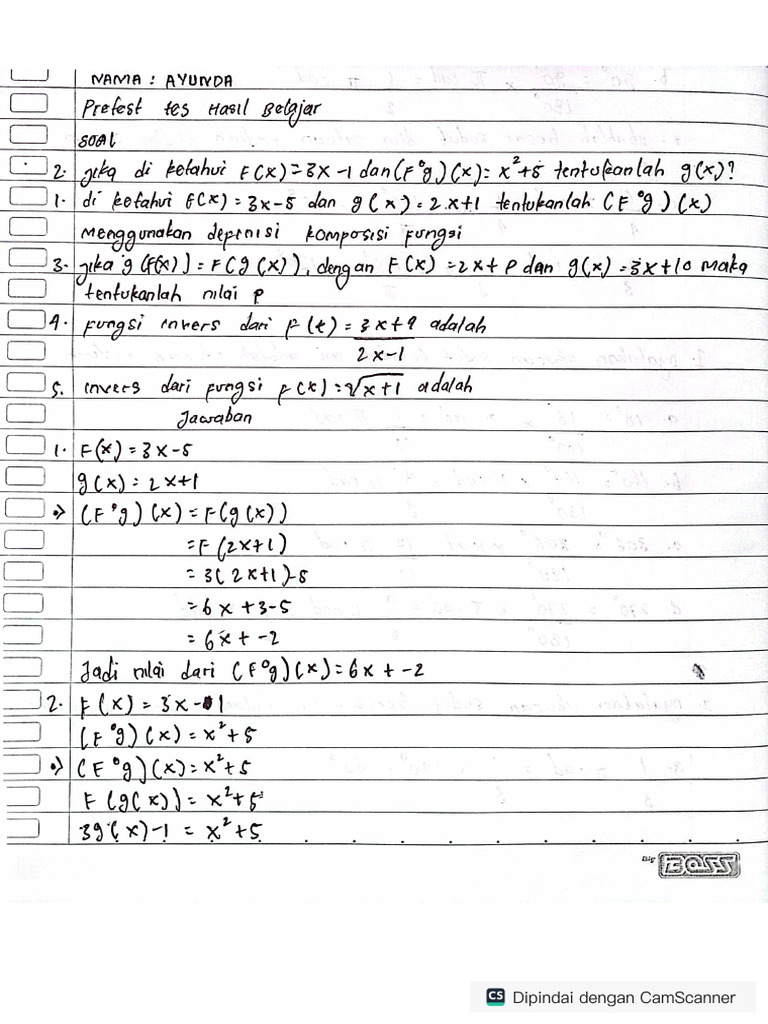 NAMA : AYUNDA
Pretest tes Hasil Belajar
SOAl
2. jika di ketahui F(x) = 3x - 1 dan (F°g)(x) = x²+5 tentukanlah g(x)?
1. di ketahui F(x) = 3x-5 dan g(x) = 2x+1 tentukanlah (F°g)(x)
menggunakan depenisi komposisi fungsi
3. jika g(F(x)) = F(g(x)), dengan F(x) = 2x + p dan g(x) = 3x+10 maka
tentukanlah nilai p
4. fungsi invers dari F(t) = 3x+9 adalah
2x-1
5. invers dari fungsi F(x) = ²√x+1 adalah
Jawaban
1. F(x) = 3x-5
g(x) = 2x+1
•> (F°g)(x) = F(g(x))
= F(2x+1)
= 3(2x+1)-5
= 6x+3-5
= 6x + -2
Jadi nilai dari (F°g)(x) = 6x + -2
2. F(x) = 3x - 1
(F°g)(x) = x²+5
•> (F°g)(x) = x²+5
F(g(x)) = x²+5
3g(x)-1 = x²+5
Big BOSS
CS Dipindai dengan CamScanner